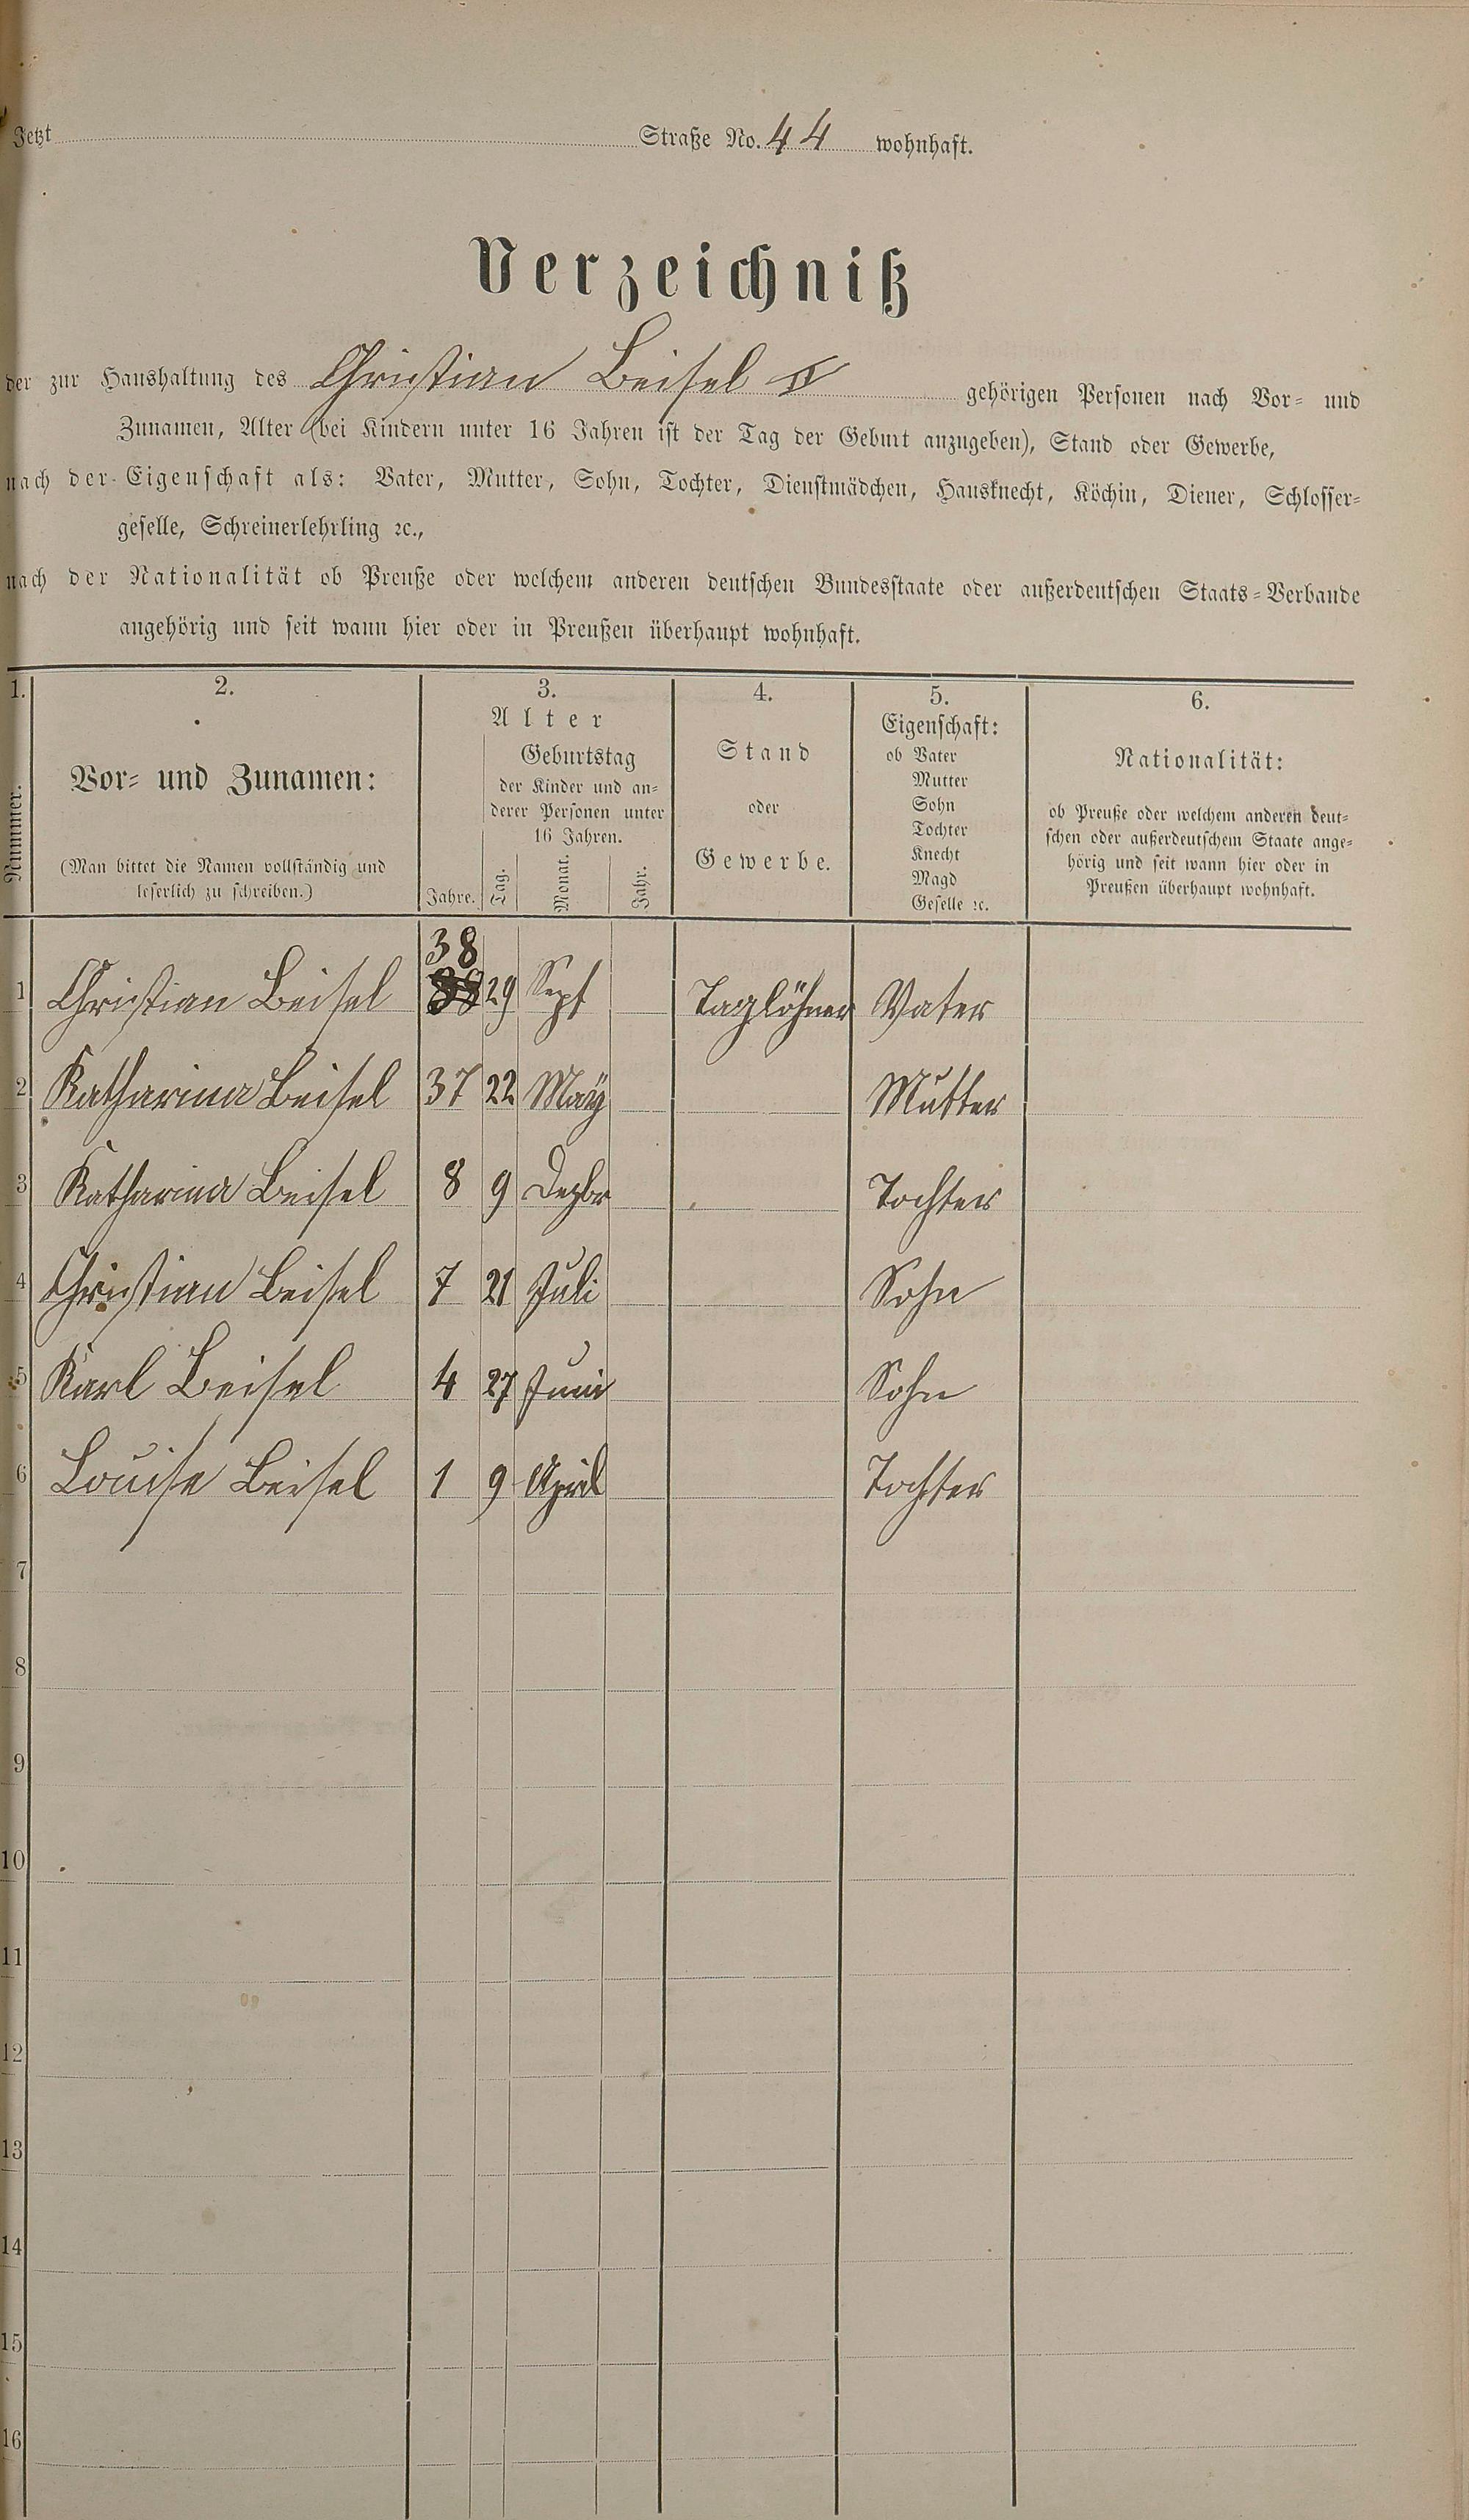 Jetzt Straße No. 44 wohnhaft.
Verzeichniß
der zur Haushaltung des Christian Beisel gehörigen Personen nach Vor- und
Zunamen, Alter (bei Kindern unter 16 Jahren ist der Tag der Geburt anzugeben), Stand oder Gewerbe,
nach der Eigenschaft als: Vater, Mutter, Sohn, Tochter, Dienstmädchen, Hausknecht, Köchin, Diener, Schlosser-
geselle, Schreinerlehrling ꝛc.,
nach der Nationalität ob Preuße oder welchem anderen deutschen Bundesstaate oder außerdeutschen Staats-Verbande
angehörig und seit wann hier oder in Preußen überhaupt wohnhaft.
1. 2. 3. 4. 5. 6.
Nummer.
Vor- und Zunamen:
(Man bittet die Namen vollständig und
leserlich zu schreiben.)
Alter
Jahre.
Geburtstag
der Kinder und an-
derer Personen unter
16 Jahren.
Tag. Monat. Jahr.
Stand
oder
Gewerbe.
Eigenschaft:
ob Vater
Mutter
Sohn
Tochter
Knecht
Magd
Geselle ꝛc.
Nationalität:
ob Preuße oder welchem anderen deut-
schen oder außerdeutschem Staate ange-
hörig und seit wann hier oder in
Preußen überhaupt wohnhaft.
38
1 Christian Beisel 29 Sept Taglöhner Vater
2 Katharina Beisel 37 22 May Mutter
3 Katharina Beisel 8 9 Dezbr Tochter
4 Christian Beisel 7 21 Juli Sohn
5 Karl Beisel 4 27 Juni Sohn
6 Louise Beisel 1 9 April Tochter
7
8
9
10
11
12
13
14
15
16